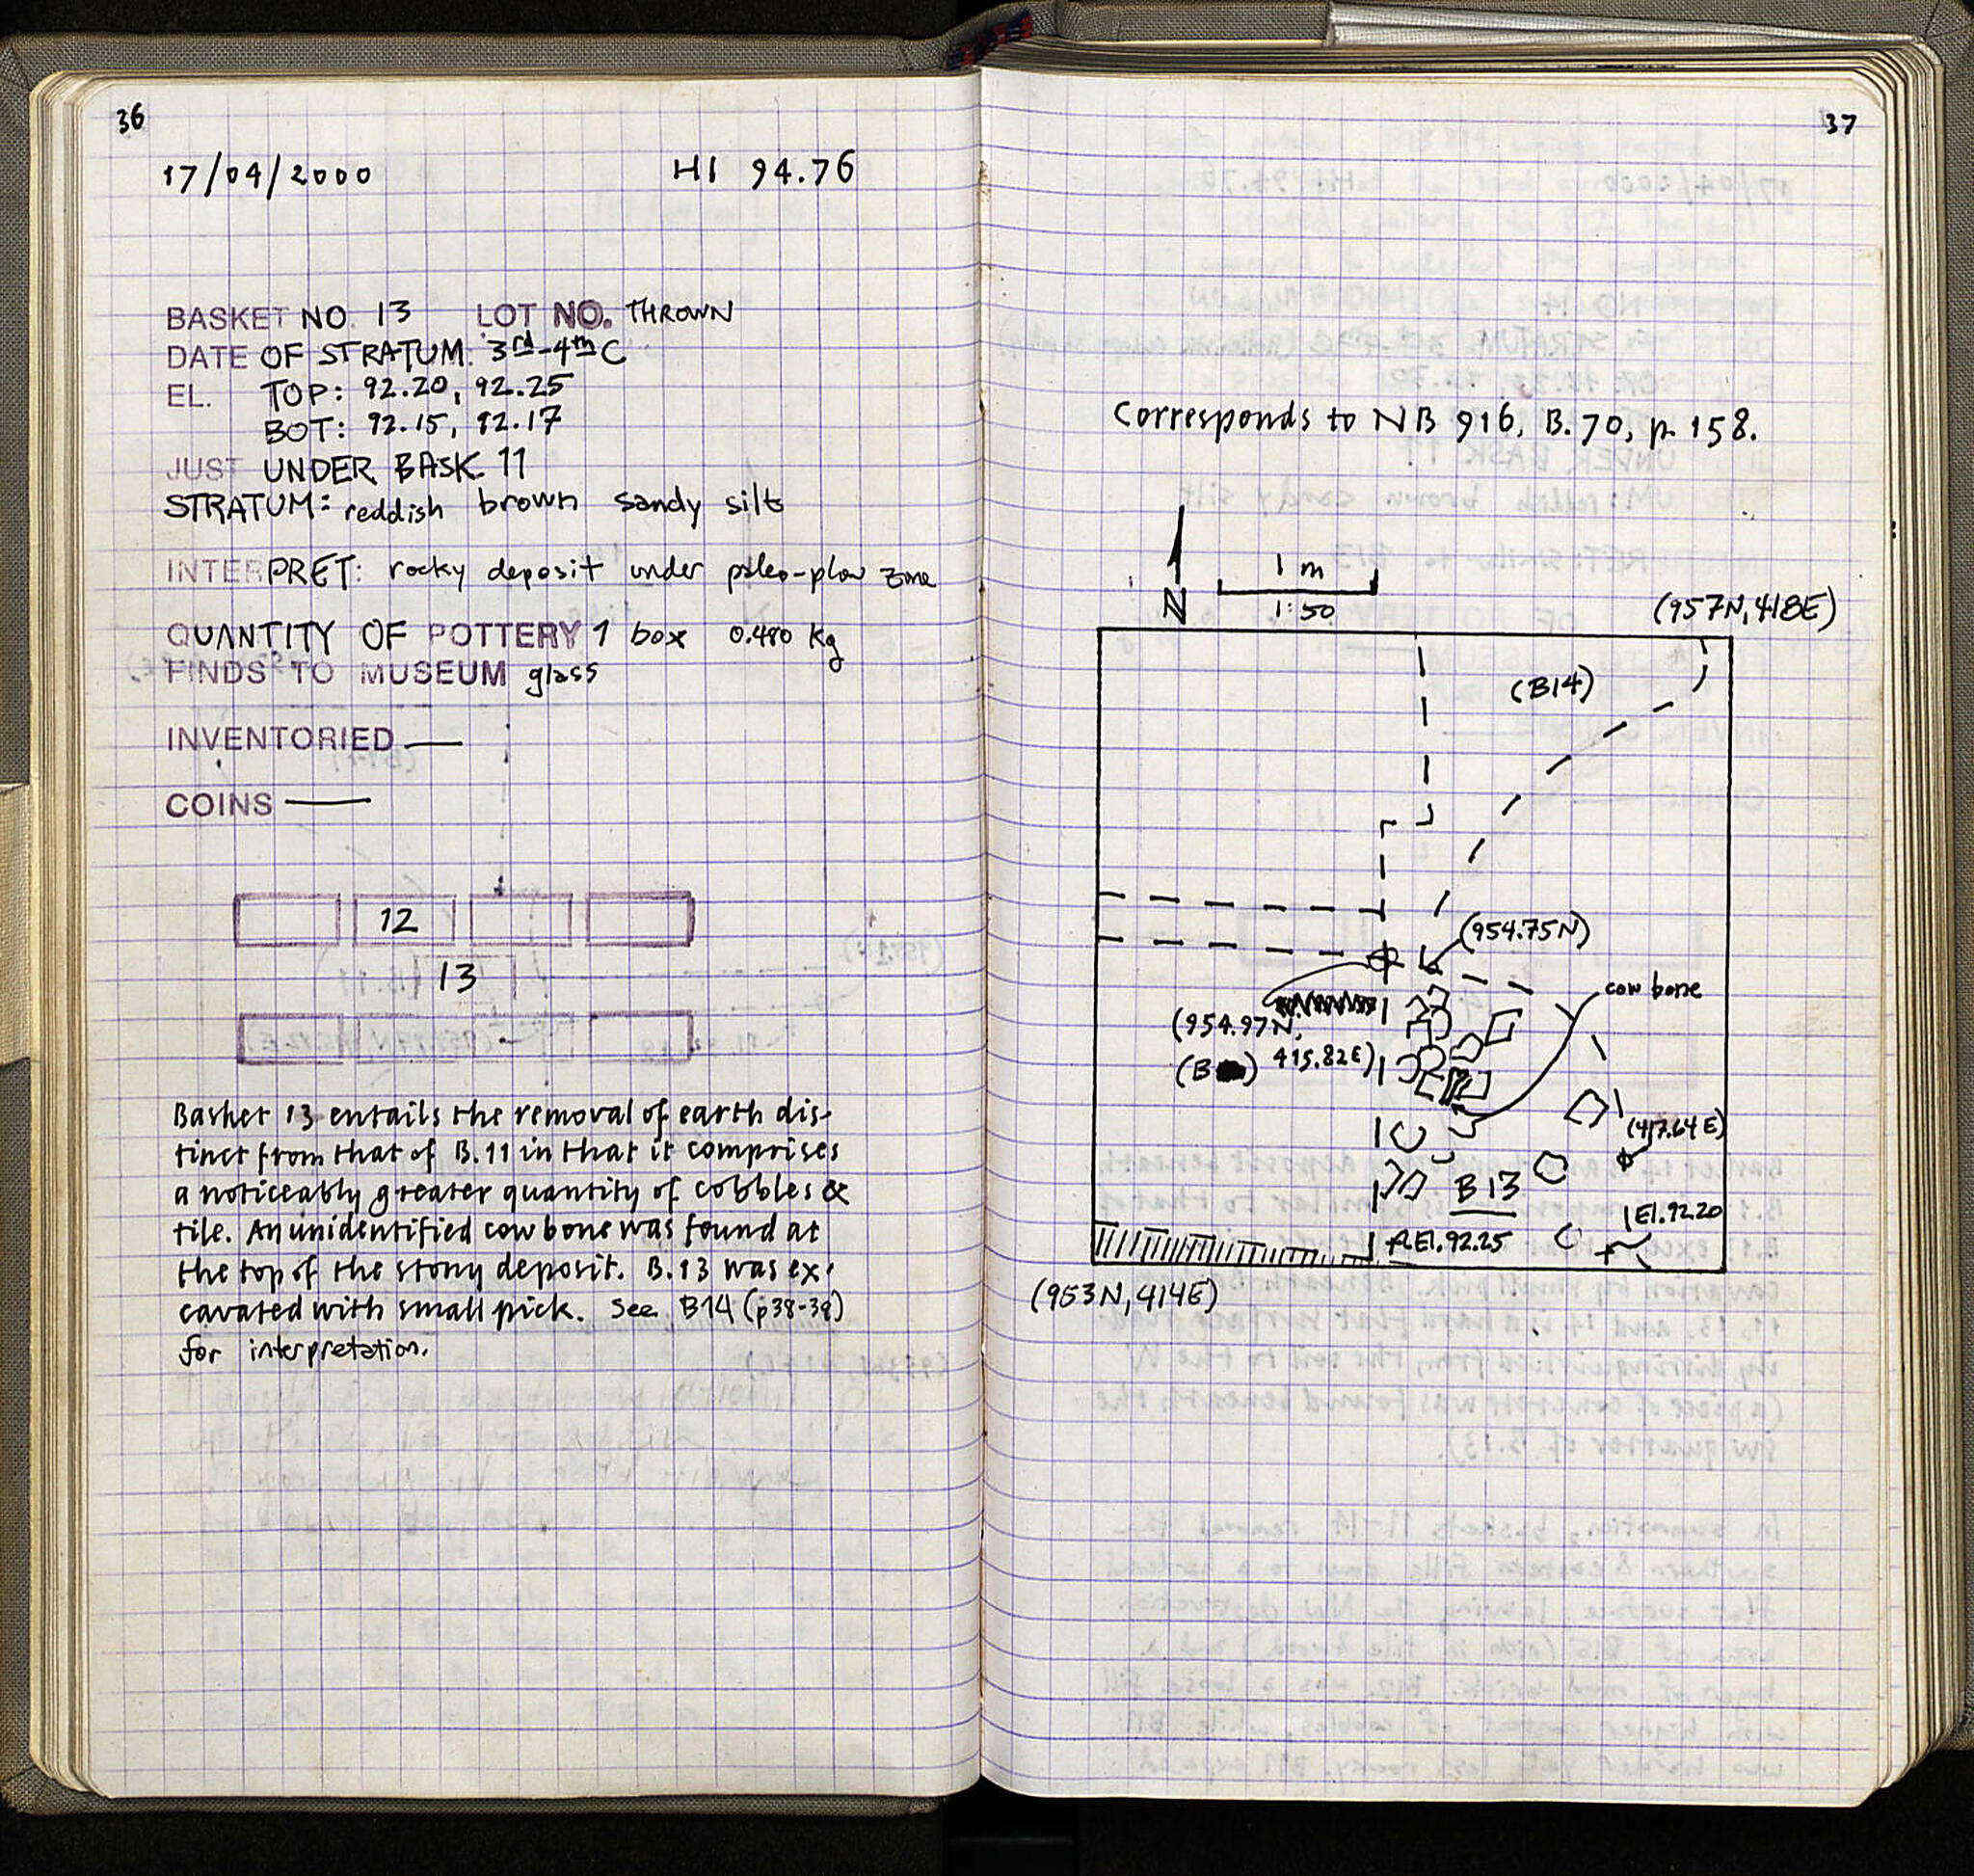 36
17/04/2000 HI 94.76
BASKET NO. 13 LOT NO. THROWN
DATE OF STRATUM: 3rd-4th C
EL. TOP: 92.20, 92.25
BOT: 92.15, 92.17
JUST UNDER BASK. 11
STRATUM: reddish brown sandy silt
INTERPRET: rocky deposit under paleo-plow zone
QUANTITY OF POTTERY 1 box 0.480 kg
FINDS TO MUSEUM glass
INVENTORIED —
COINS —
12
13
Basket 13 entails the removal of earth dis-
tinct from that of B.11 in that it comprises
a noticeably greater quantity of cobbles &
tile. An unidentified cow bone was found at
the top of the stony deposit. B.13 was ex-
cavated with small pick. See B14 (p38-39)
for interpretation.
37
Corresponds to NB 916, B.70, p. 158.
N
1 m
1:50
(957N, 418E)
(B14)
(954.75N)
cow bone
(954.97N,
415.82E)
(B )
(417.64E)
B13
El. 92.20
El. 92.25
(953N, 414E)